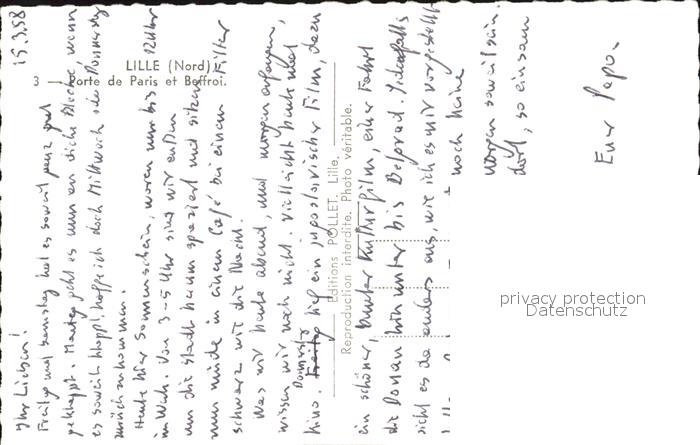 15.3.58
Ihr Lieben!
Freitag und Samstag hat es soweit ganz gut
geklappt. Montag geht es nun an dicke Bleche, wenn
es soweit klappt, hoffe ich doch Mittwoch oder Donnerstag
zurückzukommen.
Heute hier Sonnenschein, waren nun bis 12 Uhr
im Werk. Von 3-5 Uhr sind wir außen
um die Stadt herum spaziert und sitzen
nun müde in einem Café bei einem Filter
schwarz wie die Nacht.
Was wir heute abend, und morgen anfangen,
wissen wir noch nicht. Vielleicht heute und
Kino. Donnerstag lief ein jugoslavischer Film, dazu
ein schöner, bunter Kulturfilm, einer Fahrt
die Donau hinunter bis Belgrad. Jedenfalls
sieht es da anders aus, wie ich es mir vorgestellt
noch keine
morgen soweit sein.
dort, so einsam
Euer Papa.
LILLE (Nord)
3 — Porte de Paris et Beffroi.
Editions POLLET, Lille.
Reproduction interdite. Photo véritable.
privacy protection
Datenschutz